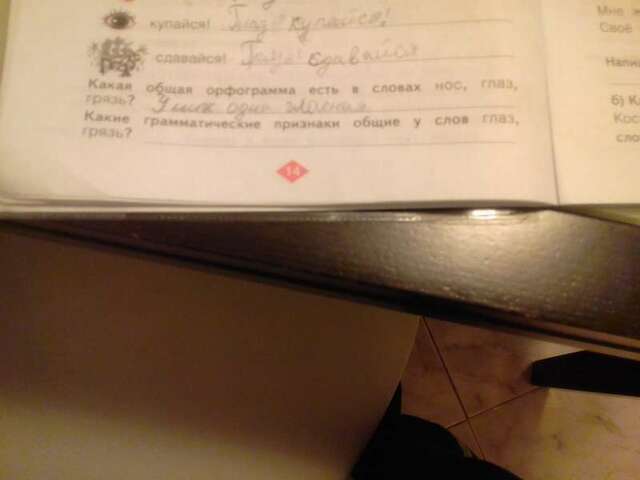 купайся! Глаз купайся!
сдавайся! сдавайся
Какая общая орфограмма есть в словах нос, глаз,
грязь? У них одна гласная
Какие грамматические признаки общие у слов глаз,
грязь?
14
Мне
Своё
б)
сло